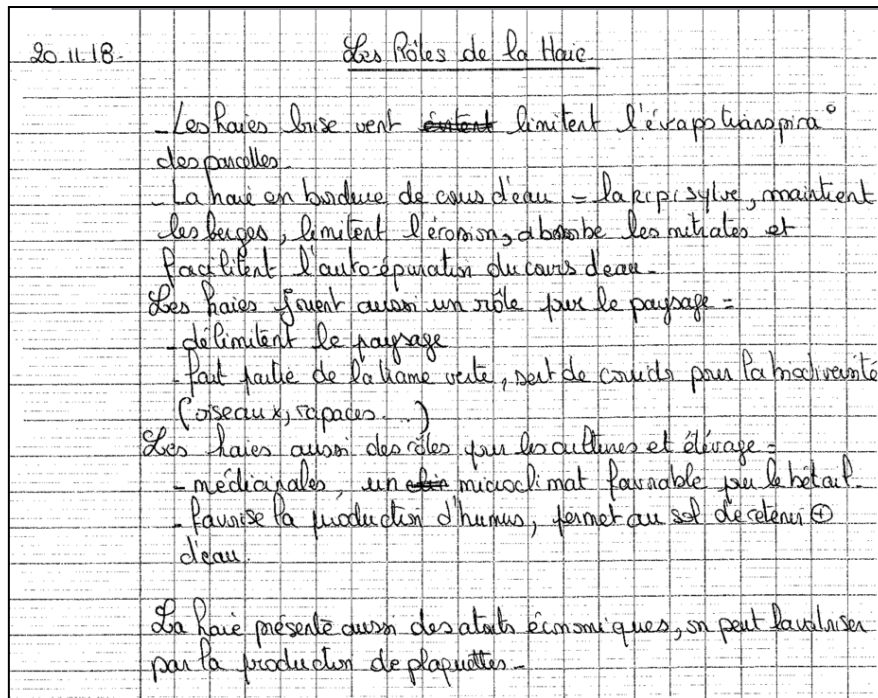 20.11.18. Les Rôles de la Haie.
- Les haies brise vent évitent limitent l'évapotranspira°
des parcelles.
- La haie en bordure de cours d'eau = la ripisylve, maintient
les berges, limitent l'érosion, absorbe les nitrates et
facilitent l'auto-épuration du cours d'eau.
Les haies jouent aussi un rôle pour le paysage =
- délimitent le paysage
- fait partie de la trame verte, sert de corridor pour la biodiversité
(oiseaux, rapaces...)
Les haies aussi des rôles pour les cultures et élevage =
- médicinales, un microclimat favorable pour le bétail.
- favorise la production d'humus, permet au sol de retenir ⊕
d'eau.
La haie présente aussi des atouts économiques, on peut la valoriser
par la production de plaquettes.